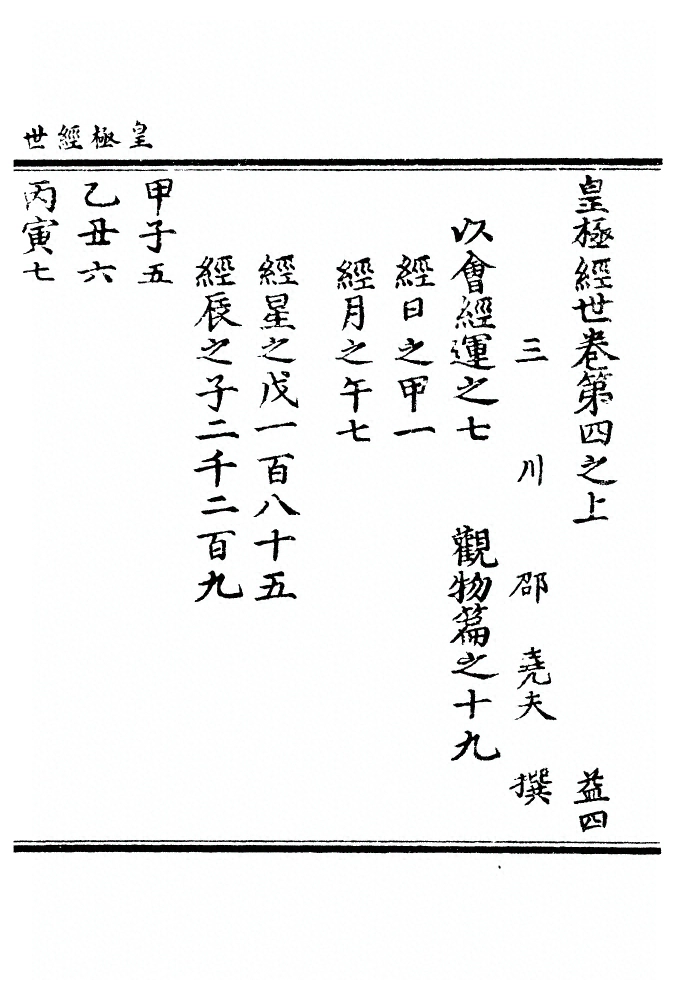 皇極經世
皇極經世卷第四之上 益四
三川 邵堯夫 撰
以會經運之七 觀物篇之十九
經日之甲一
經月之午七
經星之戊一百八十五
經辰之子二千二百九
甲子五
乙丑六
丙寅七